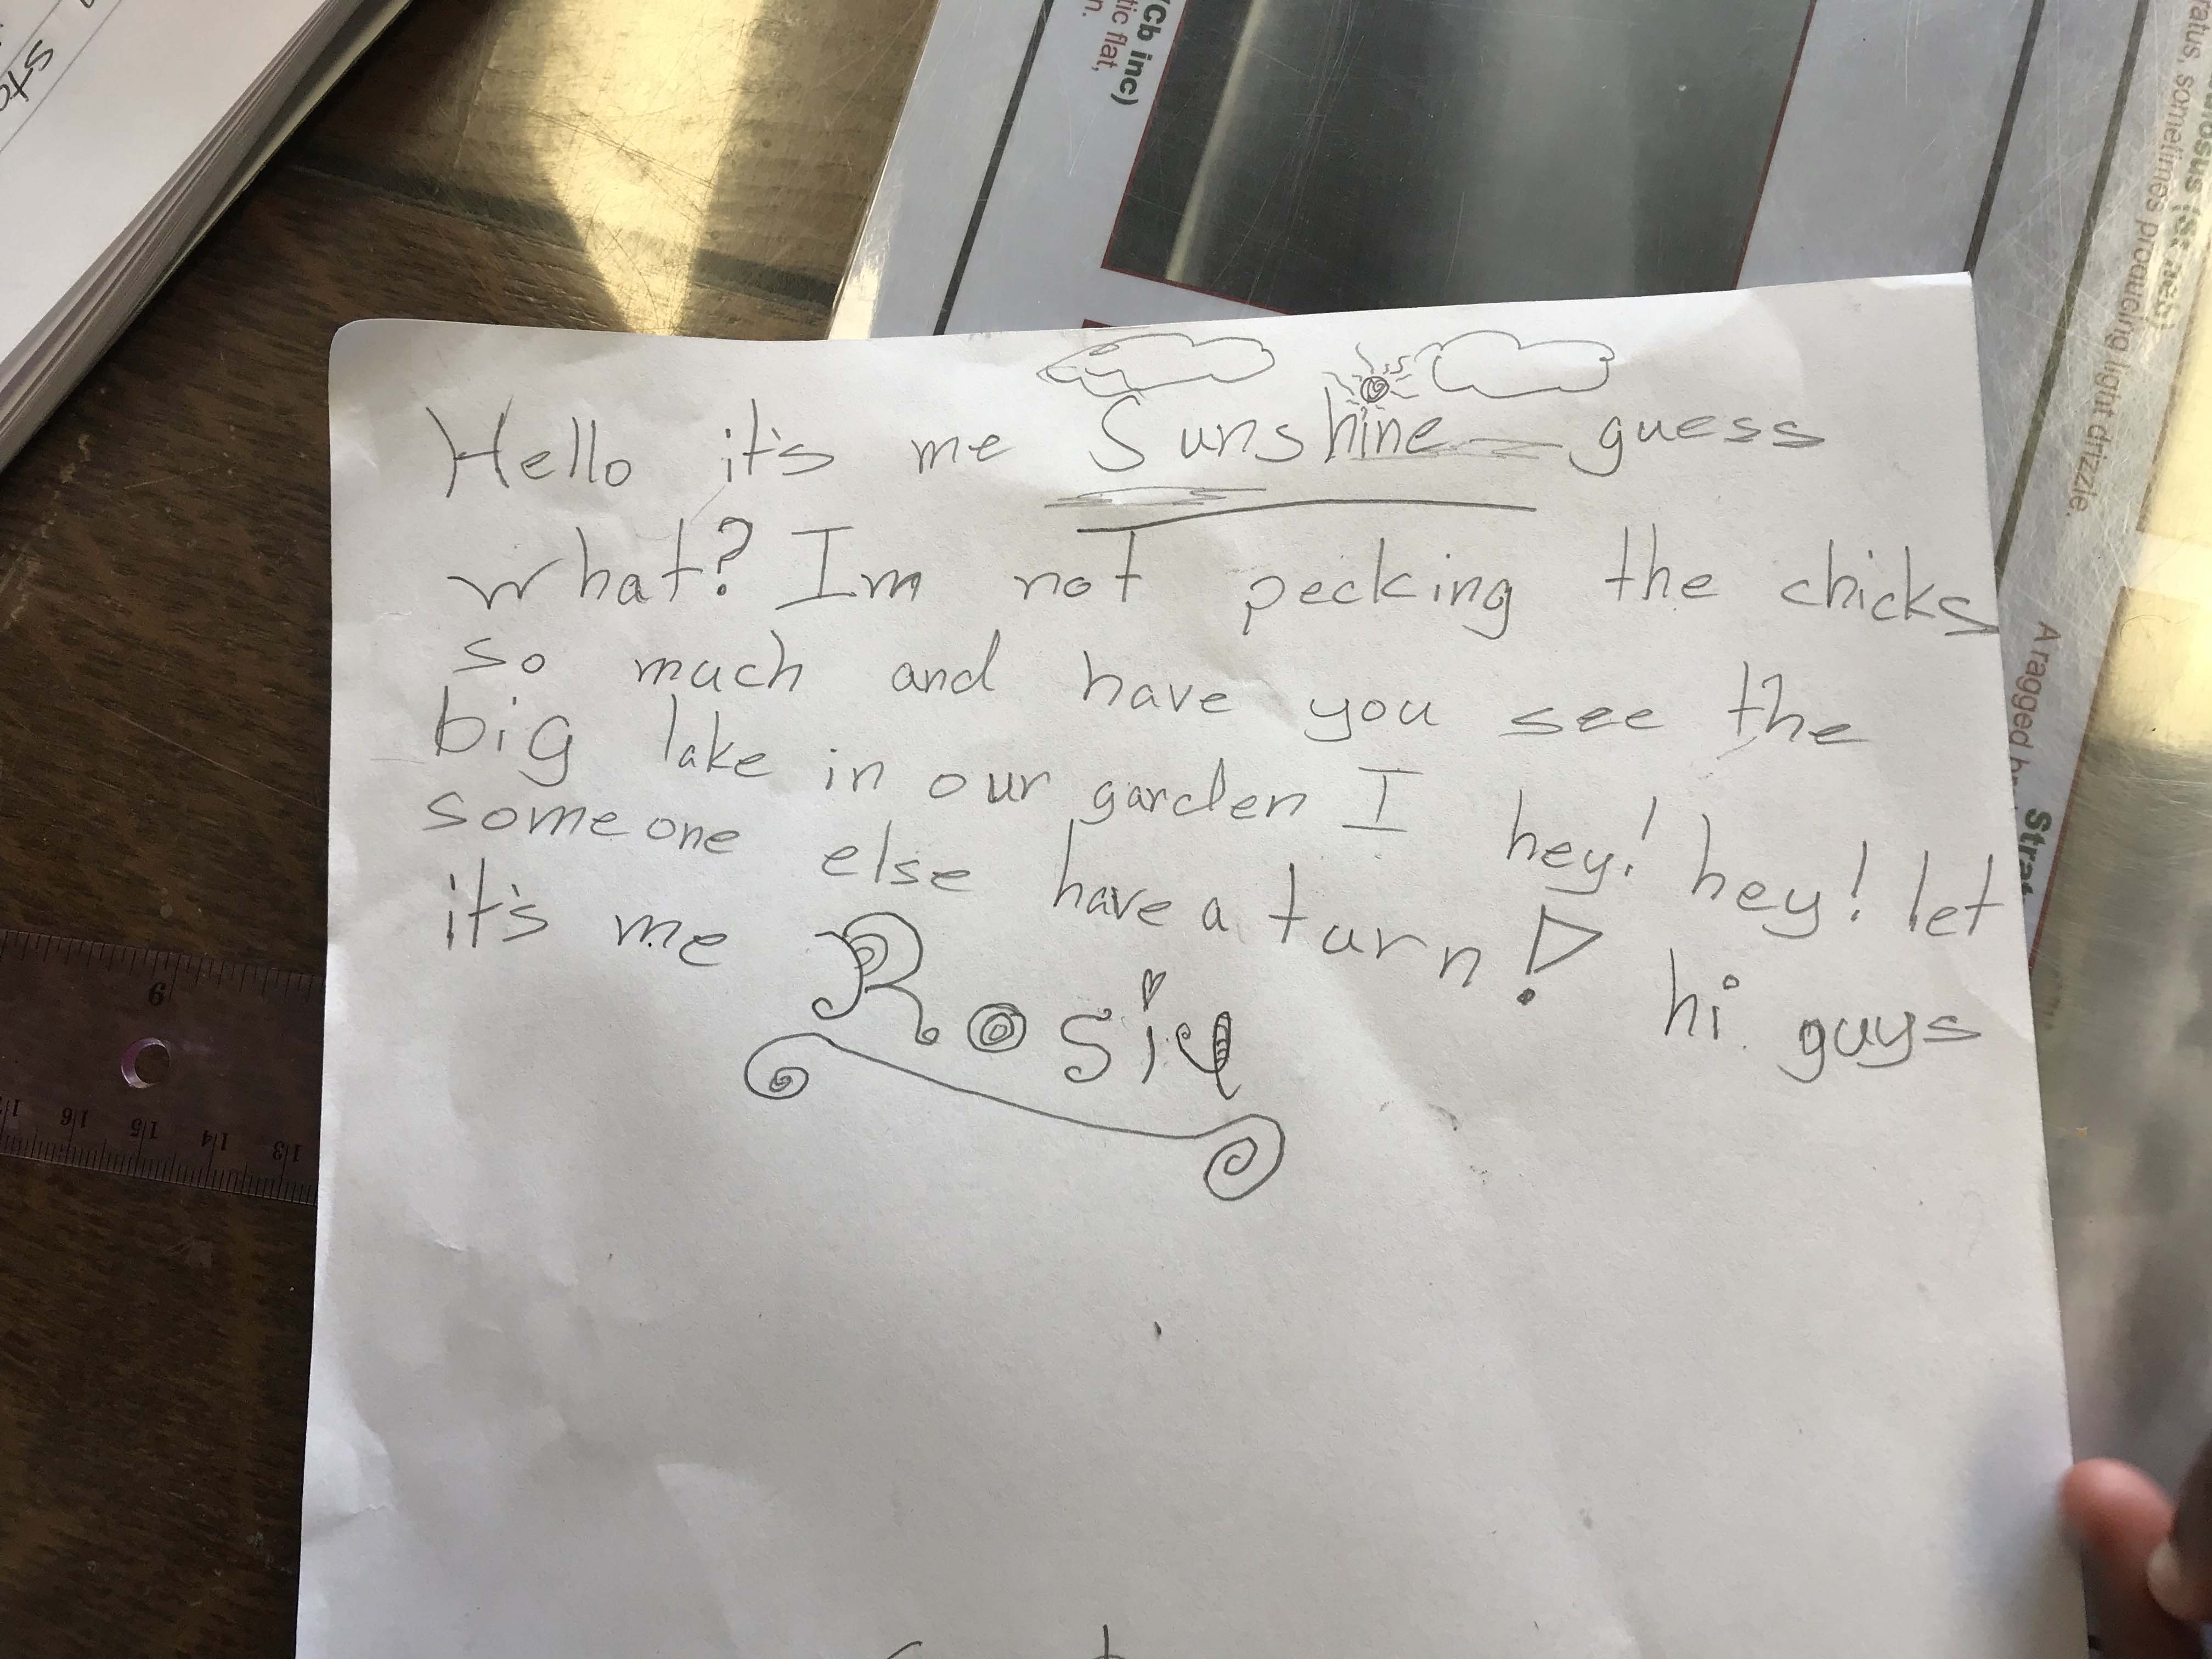 Hello it's me Sunshine guess
what? Im not pecking the chicks
so much and have you see the
big lake in our garden I hey! hey! let
someone else have a turn! hi guys
it's me Rosie
(Cb inc)
tic flat,
n.
ratus, sometimes producing light drizzle.
A ragged
Strat
9
1/7
1/6
1/5
1/4
1/3